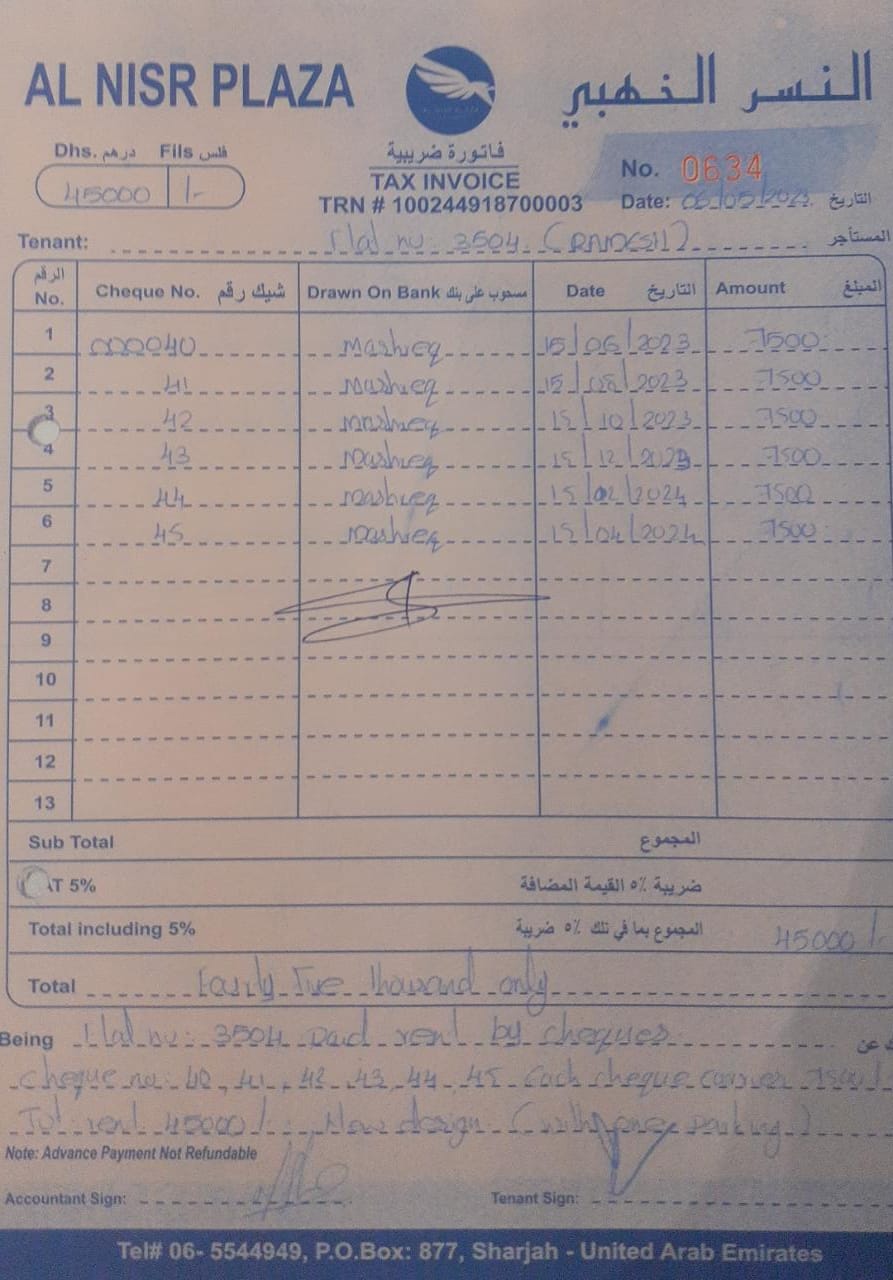 AL NISR PLAZA النسر الذهبي
Dhs. درهم Fils فلس
45000 /-
فاتورة ضريبية
TAX INVOICE
TRN # 100244918700003
No. 0634
Date: 06/05/2023 التاريخ
Tenant: Flat no: 3504 المستأجر
الرقم No. Cheque No. شيك رقم Drawn On Bank مسحوب على بنك Date التاريخ Amount المبلغ
1 000040 Mashreq 15/06/2023 7500
2 41 Mashreq 15/08/2023 7500
3 42 Mashreq 15/10/2023 7500
4 43 Mashreq 15/12/2023 7500
5 44 Mashreq 15/02/2024 7500
6 45 Mashreq 15/04/2024 7500
7
8
9
10
11
12
13
Sub Total المجموع
AT 5% ضريبة ٥% القيمة المضافة
Total including 5% المجموع بما في تلك ٥% ضريبة 45000/-
Total Fourty Five thousand only
Being Flat no: 3504 Paid rent by cheques
Cheque no: 40, 41, 42, 43, 44, 45 Each cheque carries 7500/-
Tot rent 45000/- design (with one parking)
Note: Advance Payment Not Refundable
Accountant Sign: Tenant Sign:
Tel# 06- 5544949, P.O.Box: 877, Sharjah - United Arab Emirates